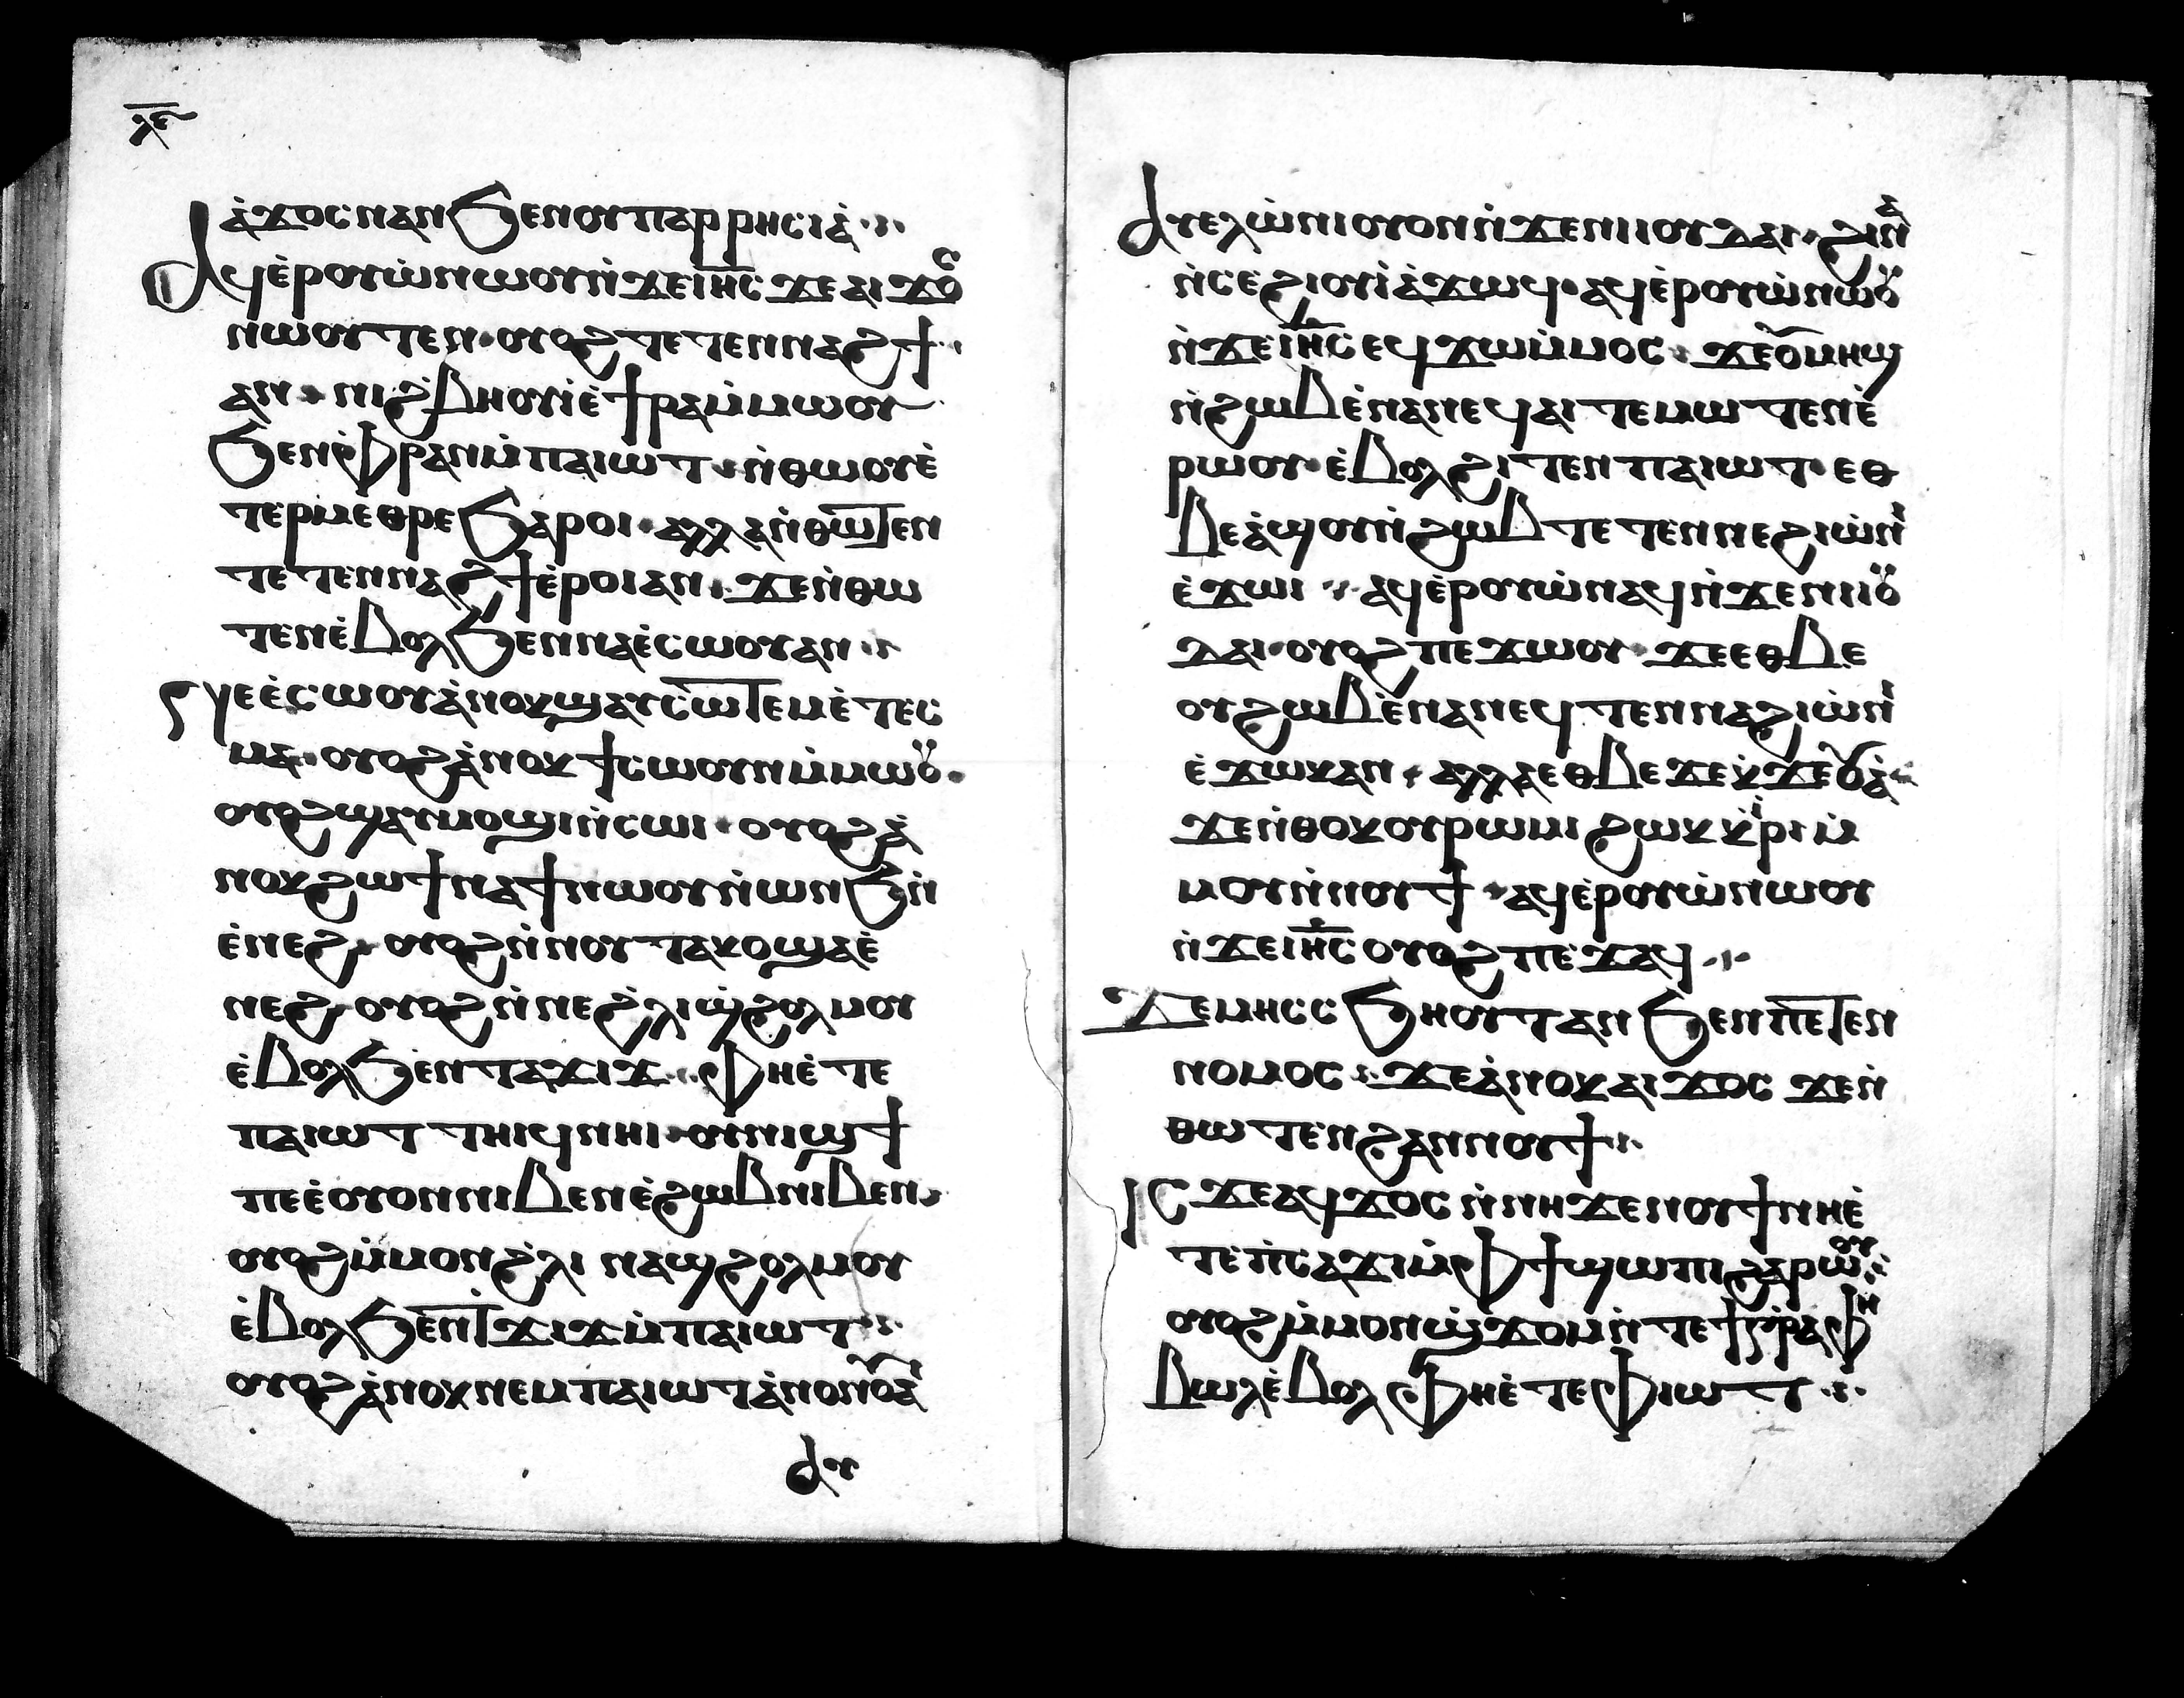 ⲗⲉ
ⲁ̀ϫⲟⲥⲛⲁⲛϧⲉⲛⲟⲩⲡⲁⲣⲣⲏⲥⲓⲁ̀
Ⲁϥⲉ̀ⲣⲟⲩⲱ̀ⲛⲱⲟⲩⲛ̀ϫⲉⲓⲏ̅ⲥ̅ϫⲉⲁⲓϫⲟⲥ
ⲛⲱⲟⲩⲧⲉⲛ·ⲟⲩⲟϩⲧⲉⲧⲉⲛⲛⲁϩϯ
ⲁⲛ·ⲛⲓϩ̀ⲃⲏⲟⲩⲓ̀ⲉ̀ϯⲣⲁⲙ̀ⲙⲱⲟⲩ
ϧⲉⲛⲫ̀ⲣⲁⲛⲙ̀ⲡⲁⲓⲱⲧ·ⲛ̀ⲑⲱⲟⲩⲉ̀
ⲧⲉⲣⲙⲉⲑⲣⲉϧⲁⲣⲟⲓ·ⲁⲗⲗⲁⲛ̀ⲑⲱⲧⲉⲛ
ⲧⲉⲧⲉⲛⲛⲁϩϯⲉ̀ⲣⲟⲓⲁⲛ·ϫⲉⲛ̀ⲑⲱ
ⲧⲉⲛⲉ̀ⲃⲟⲗϧⲉⲛⲛⲁⲉ̀ⲥⲱⲟⲩⲁⲛ
ⲅⲉⲉ̀ⲥⲱⲟⲩⲁ̀ⲛⲟⲕϣⲁⲩⲥⲱⲧⲉⲙⲉ̀ⲧⲉⲥ
ⲙⲁ·ⲟⲩⲟϩⲁ̀ⲛⲟⲕϯⲥⲱⲟⲩⲛⲙ̀ⲙⲱⲟⲩ·
ⲟⲩⲟϩϣⲁⲩⲙⲟϣⲓⲛ̀ⲥⲱⲓ·ⲟⲩⲟϩⲁ̀
ⲛⲟⲕϩⲱϯⲛⲁϯⲛⲱⲟⲩⲛ̀ⲱⲛϧⲛ̀
ⲉ̀ⲛⲉϩ·ⲟⲩⲟϩⲛ̀ⲛⲟⲩⲧⲁⲕⲟϣⲁⲉ̀
ⲛⲉϩ·ⲟⲩⲟϩⲛ̀ⲛⲉϩ̀ⲗⲓϣ̀ϩⲟⲗⲙⲟⲩ
ⲉ̀ⲃⲟⲗϧⲉⲛⲧⲁϫⲓϫ·ⲫⲏⲉ̀ⲧⲉ
ⲡⲁⲓⲱⲧⲧⲏⲓϥⲛⲏⲓ·ⲟⲩⲛⲓϣϯ
ⲡⲉⲉ̀ⲟⲩⲟⲛⲛⲓⲃⲉⲛⲉ̀ϩⲱⲃⲛⲓⲃⲉⲛ
ⲟⲩⲟϩⲙ̀ⲙⲟⲛϩ̀ⲗⲓⲛⲁϣϩⲟⲗⲙⲟⲩ
ⲉ̀ⲃⲟⲗϧⲉⲛⲧϫⲓϫⲙ̀ⲡⲁⲓⲱⲧ
ⲟⲩⲟϩⲁ̀ⲛⲟⲕⲛⲉⲙⲡⲁⲓⲱⲧⲁ̀ⲛⲟⲛⲟⲩⲁ̀
Ⲁⲩ
Ⲁⲩⲉⲗⲱ̀ⲛⲓⲟⲩⲟⲛⲛ̀ϫⲉⲛⲓⲓⲟⲩⲇⲁⲓ·ϩⲓⲛⲁ
ⲛ̀ⲥⲉϩⲓⲟⲩⲓ̀ⲁ̀ϫⲱϥ·ⲁϥⲉ̀ⲣⲟⲩⲱ̀ⲛⲱⲟⲩ
ⲛ̀ϫⲉⲓⲏ̅ⲥ̅ⲉϥϫⲱⲙ̀ⲙⲟⲥ·ϫⲉⲟⲩⲙⲏϣ
ⲛ̀ϩⲱⲃⲉ̀ⲛⲁⲛⲉϥⲁⲓⲧⲉⲙⲱⲧⲉⲛⲉ̀
ⲣⲱⲟⲩ·ⲉ̀ⲃⲟⲗϩⲓⲧⲉⲛⲡⲁⲓⲱⲧ·ⲉⲑ
ⲃⲉⲁ̀ϣⲟⲩⲛ̀ϩⲱⲃⲧⲉⲧⲉⲛⲛⲉϩⲓⲱ̀ⲛⲓ
ⲉ̀ϫⲱⲓ·ⲁϥⲉ̀ⲣⲟⲩⲱ̀ⲛⲁϥⲛ̀ϫⲉⲛⲓⲓⲟⲩ
ⲇⲁⲓ·ⲟⲩⲟϩⲡⲉϫⲱⲟⲩ·ϫⲉⲉⲑⲃⲉ
ⲟⲩϩⲱⲃⲉ̀ⲛⲁⲛⲉϥⲧⲉⲛⲛⲁϩⲓⲱ̀ⲛⲓ
ⲉ̀ϫⲱⲕⲁⲛ·ⲁⲗⲗⲁⲉⲑⲃⲉϫⲉⲕ̀ϫⲉⲟⲩⲁ̀
ϫⲉⲛ̀ⲑⲟⲕⲟⲩⲣⲱⲙⲓϩⲱⲕⲕ̀ⲓⲣⲓⲙ̀
ⲙⲟⲕⲛ̀ⲛⲟⲩϯ·ⲁϥⲉ̀ⲣⲟⲩⲱ̀ⲛⲱⲟⲩ
ⲛ̀ϫⲉⲓⲏ̅ⲥ̅ⲟⲩⲟϩⲡⲉϫⲁϥ
Ϫⲉⲙⲏⲥⲥϧⲏⲟⲩⲧⲁⲛϧⲉⲛⲡⲉⲧⲉⲛ
ⲛⲟⲙⲟⲥ·ϫⲉⲁ̀ⲛⲟⲕⲁⲓϫⲟⲥϫⲉⲛ̀
ⲑⲱⲧⲉⲛϩⲁⲛⲛⲟⲩϯ
ⲓⲥϫⲉⲁϥϫⲟⲥⲛ̀ⲛⲏϫⲉⲛⲟⲩϯⲛⲏⲉ̀
ⲧⲉⲡ̀ⲥⲁϫⲓⲙ̀ⲫϯϣⲱⲡⲓϩⲁⲣⲱⲟⲩ
ⲟⲩⲟϩⲙ̀ⲙⲟⲛϣ̀ϫⲟⲙⲛ̀ⲧⲉϯⲅ̀ⲣⲁⲫⲏ
ⲃⲱⲗⲉ̀ⲃⲟⲗⲫⲏⲉ̀ⲧⲉⲫⲓⲱⲧ